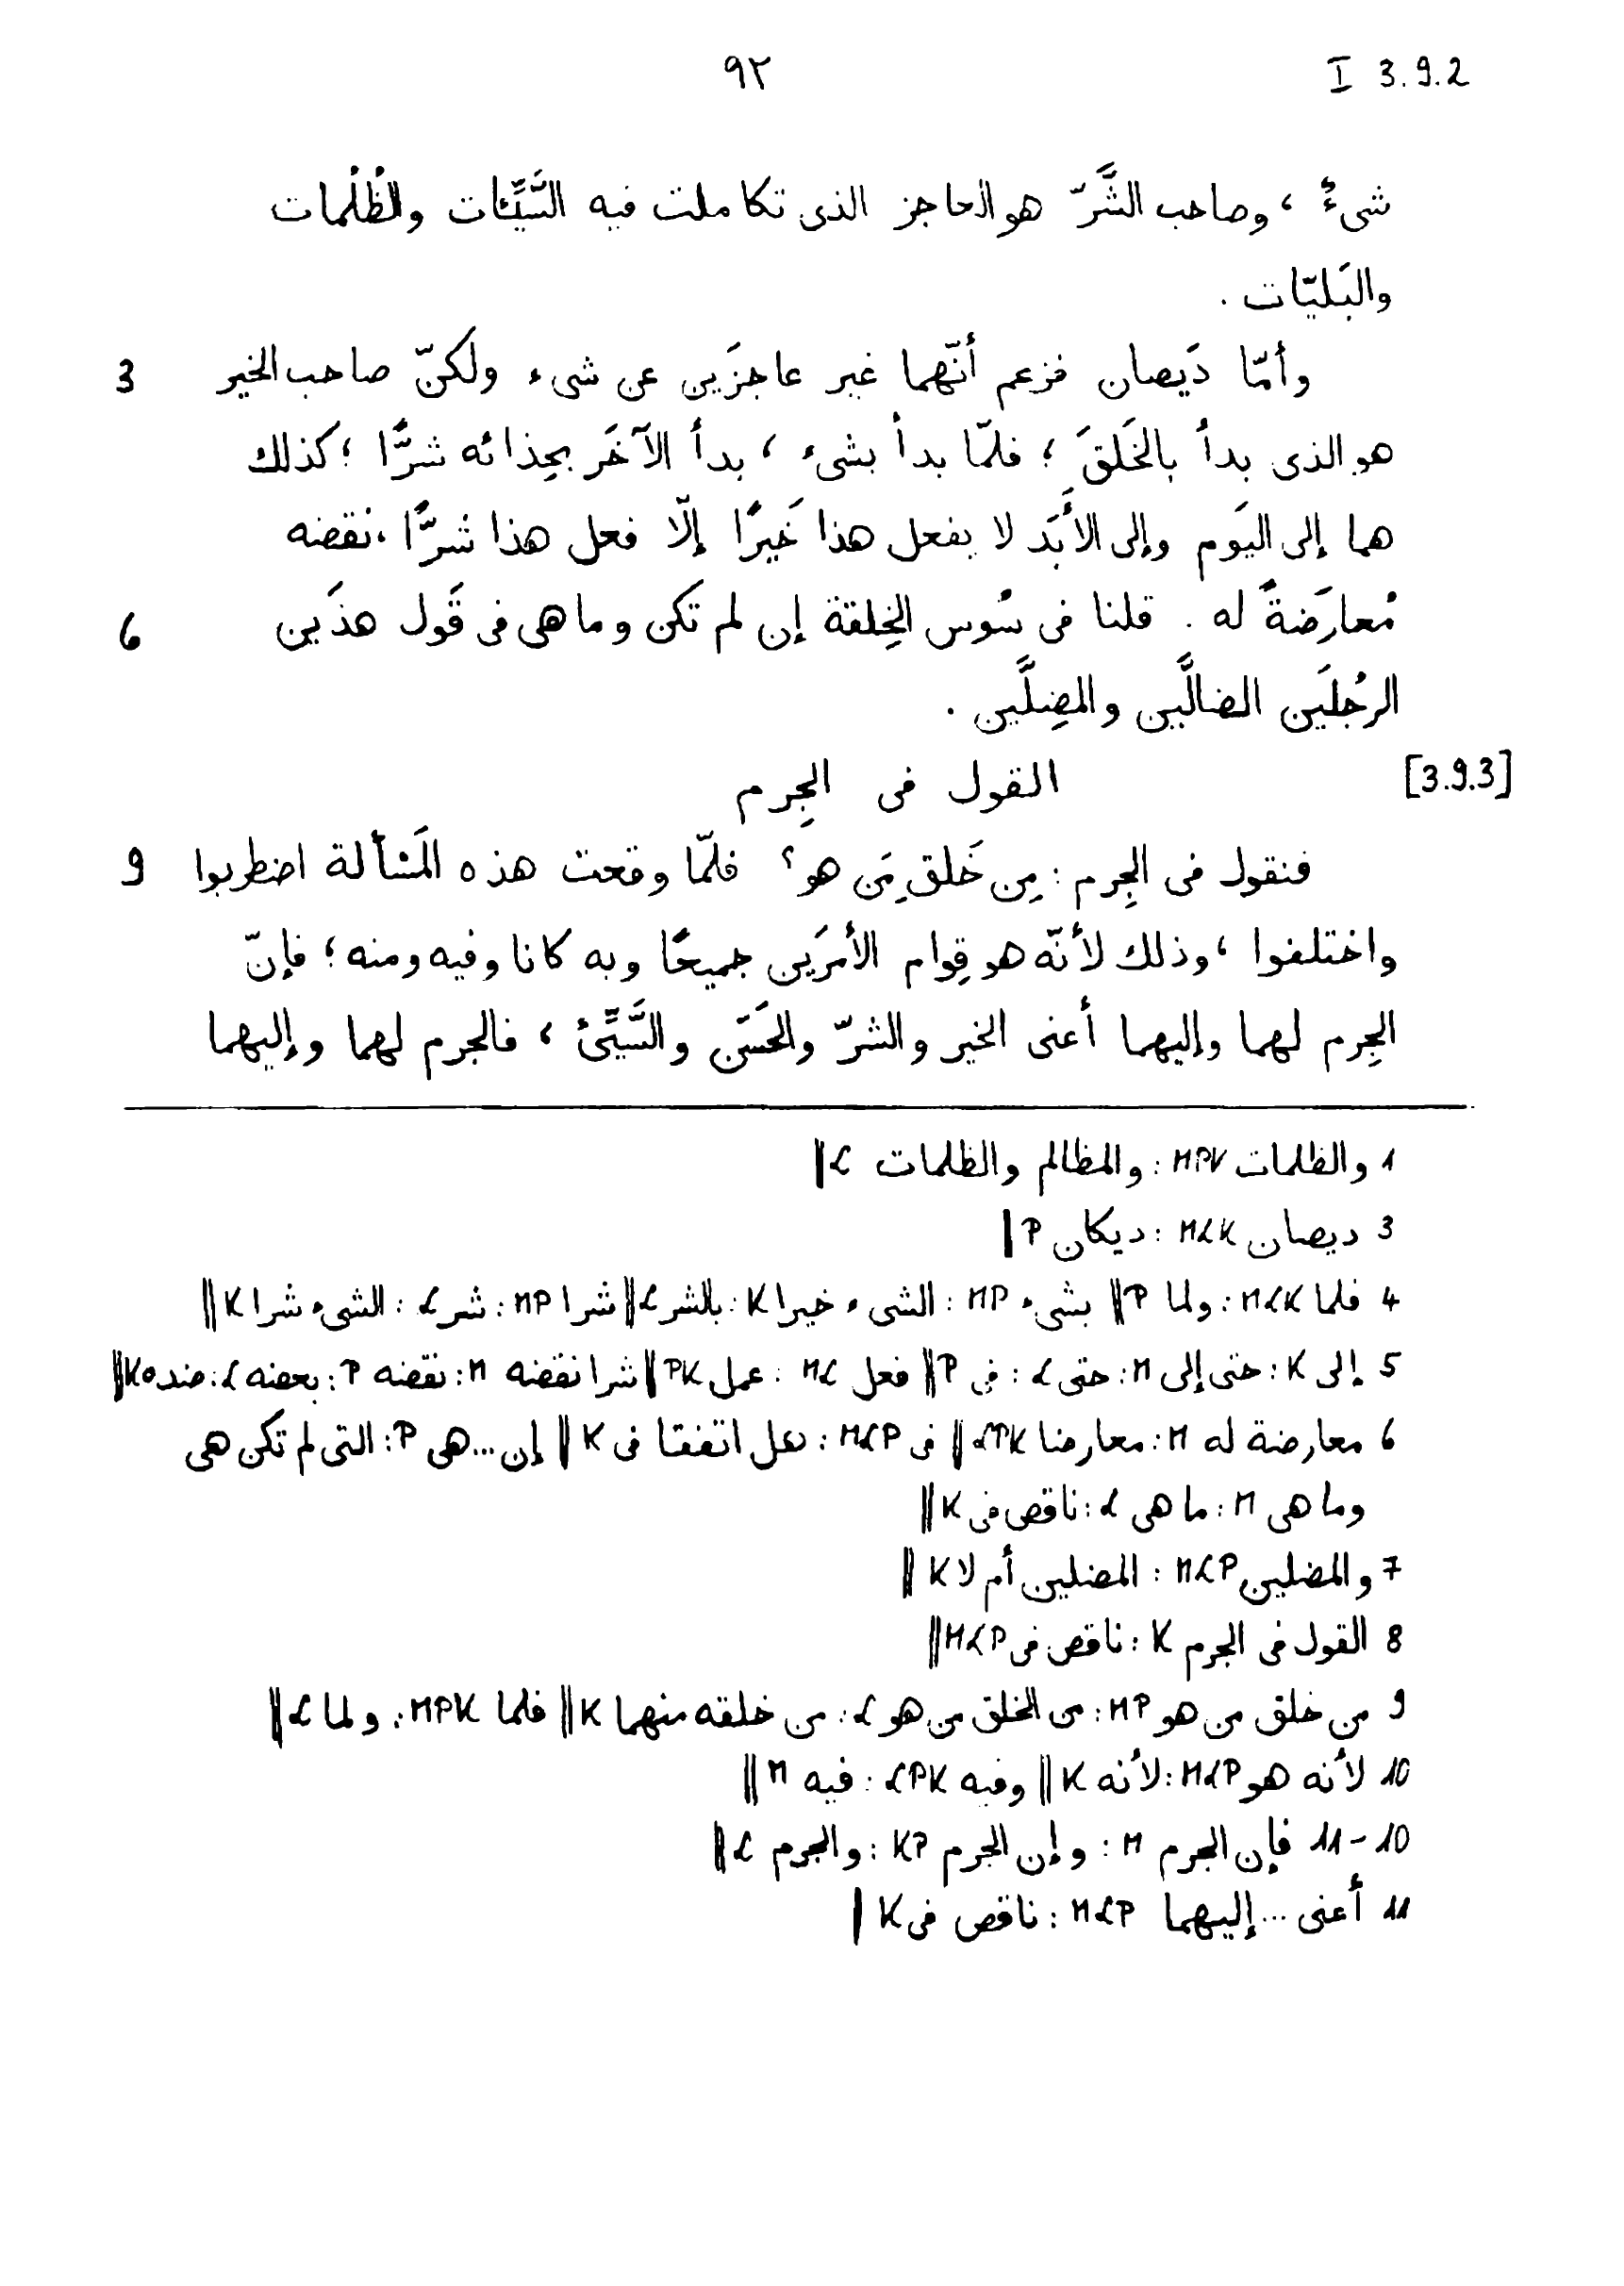 I 3.9.2 ٩٢
شىءٌ ، وصاحب الشَّرّ هو الحاجز الذى تكاملت فيه السَّيِّئات والظُلُمات
والبَليّات .
وأمّا دَيصان فزعم أنّهما غير عاجزَين عن شىء ولكنّ صاحب الخير 3
هو الذى بدأ بالخَلقَ ؛ فلمّا بدأ بشىء ، بدأ الآخَر بحِذائه شرًّا ؛ كذلك
هما إلى اليَوم وإلى الأَبَد لا يفعل هذا خَيرًا إلّا فعل هذا شرًّا ، نقضه
مُعارَضةً له . قلنا فى سُوس الخِلقة إن لم تكن وما هى فى قَول هذَين 6
الرجُلَين الضالَّين والمضِلَّين .
[3.9.3] القول فى الجِرم
فنقول فى الجِرم : مِن خَلق مَن هو ؟ فلمّا وقعت هذه المَسْألة اضطربوا 9
واختلفوا ، وذلك لأنّه هو قِوام الأمرَين جميعًا وبه كانا وفيه ومنه ؛ فإنّ
الجِرم لهما وإليهما أعنى الخير والشرّ والحَسَن والسَّيِّئ ، فالجرم لهما وإليهما
1 والظلمات MPV : والمظالم والظلمات L ||
3 ديصان MLK : ديكان P |
4 فلما MLK : ولما P || بشىء MP : الشىء خيرا K : بالشر L || شرا MP : شر L : الشىء شرا K ||
5 إلى K : حتى إلى M : حتى L : فى P || فعل ML : عمل PK || شرا نقضه M : نقضه P : بعضه L : ضده K ||
6 معارضة له M : معارضا LPK || فى MLP : هل اتفقتا فى K || إن ... هى P : التى لم تكن هى
وما هى M : ما هى L : ناقص فى K ||
7 والمضلين MLP : المضلين أم لا K ||
8 القول فى الجرم K : ناقص فى MLP ||
9 من خلق من هو MP : من الخلق من هو L : من خلقه منهما K || فلما MPK : ولما L ||
10 لأنه هو MLP : لأنه K || وفيه LPK : فيه M ||
10-11 فإن الجرم M : وإن الجرم KP : والجرم L ||
11 أعنى ... إليهما MLP : ناقص فى K |